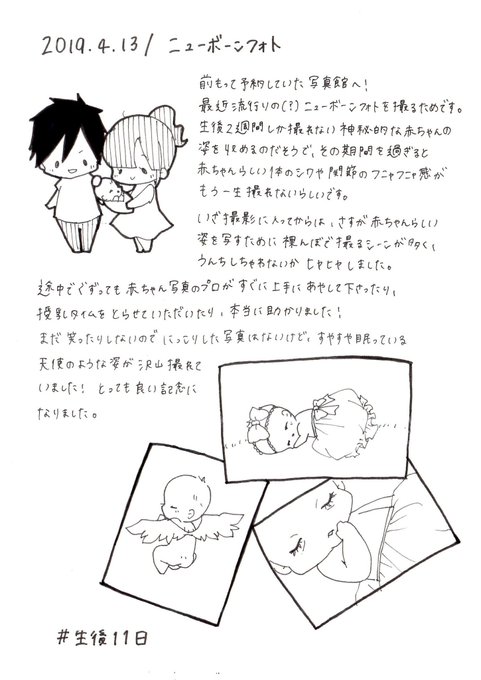 2019.4.13/ ニューボーンフォト
前もって予約していた写真館へ!
最近流行りの(?)ニューボーンフォトを撮るためです。
生後2週間しか撮れない神秘的な赤ちゃんの
姿を収めるのだそうで、その期間を過ぎると
赤ちゃんらしい体のシワや関節のフニャフニャ感が
もう一生撮れないらしいです。
いざ撮影に入ってからは、さすが赤ちゃんらしい
姿を写すために裸んぼで撮るシーンが多く、
うんちしちゃわないかヒヤヒヤしました。
途中でぐずっても赤ちゃん写真のプロがすぐに上手にあやして下さったり、
授乳タイムをとらせていただいたり、本当に助かりました!
まだ笑ったりしないのでにっこりした写真はないけど、すやすや眠っている
天使のような姿が沢山撮れて
いました! とっても良い記念に
なりました。
#生後11日